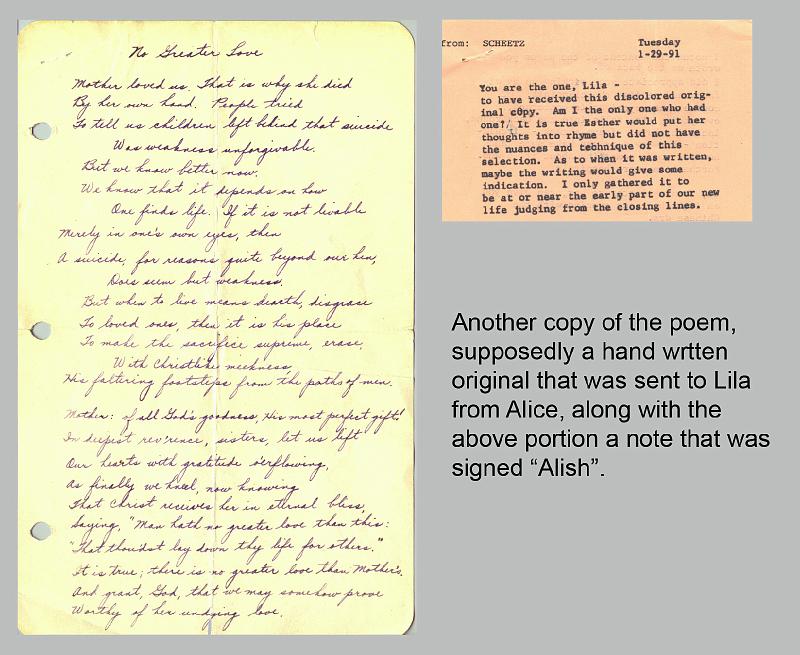 No Greater Love
Mother loved us. That is why she died
By her own hand. People tried
To tell us children left behind that suicide
Was weakness unforgivable.
But we know better now.
We know that it depends on how
One finds life. If it is not livable
Merely in one's own eyes, then
A suicide, for reasons quite beyond our ken,
Does seem but weakness.
But when to live means dearth, disgrace
To loved ones, then it is his place
To make the sacrifice supreme, erase,
With Christlike meekness,
His faltering footsteps from the paths of men.
Mother: of all God's goodness, His most perfect gift!
In deepest rev'rence, sisters, let us lift
Our hearts with gratitude o'erflowing,
As finally we kneel, now knowing
That Christ receives her in eternal bliss,
Saying, "Man hath no greater love than this:
"That thou'dst lay down thy life for others."
It is true; there is no greater love than Mother's.
And grant, God, that we may somehow prove
Worthy of her undying love.
from: SCHEETZ
Tuesday
1-29-91
You are the one, Lila -
to have received this discolored orig-
inal copy. Am I the only one who had
one? It is true Esther would put her
thoughts into rhyme but did not have
the nuances and technique of this
selection. As to when it was written,
maybe the writing would give some
indication. I only gathered it to
be at or near the early part of our new
life judging from the closing lines.
Another copy of the poem,
supposedly a hand wrtten
original that was sent to Lila
from Alice, along with the
above portion a note that was
signed “Alish”.